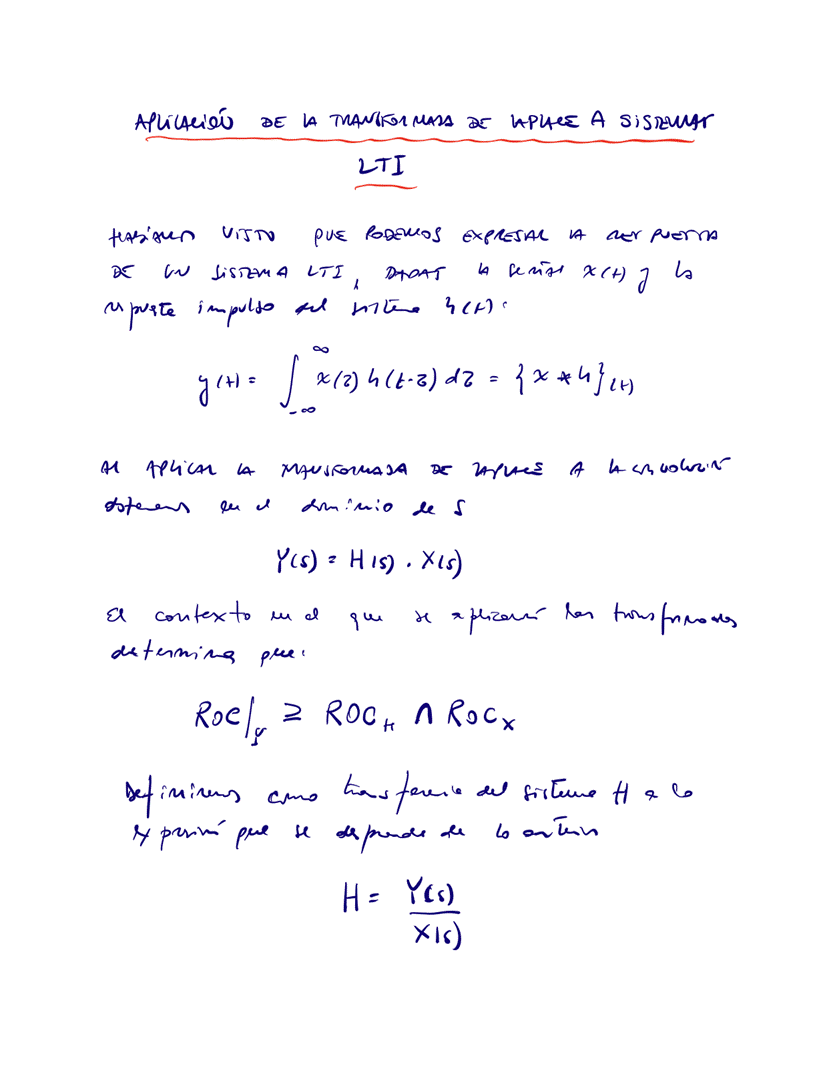 APLICACIÓN DE LA TRANSFORMADA DE LAPLACE A SISTEMAS
LTI
HABÍAMOS VISTO QUE PODEMOS EXPRESAR LA RESPUESTA
DE UN SISTEMA LTI, DADAS la señal x(t) y la
respuesta impulso del sistema h(t):
y(t) = ∫_{-∞}^{∞} x(τ) h(t-τ) dτ = {x * h}(t)
Al APLICAR LA TRANSFORMADA DE LAPLACE A la convolución
obtenemos en el dominio de s
Y(s) = H(s) . X(s)
El contexto en el que se aplicarán las transformadas
determina que:
ROC|_y ⊇ ROC_H ∩ ROC_X
Definiremos como transferencia del sistema H a la
expresión que se desprende de lo anterior
H = Y(s)/X(s)